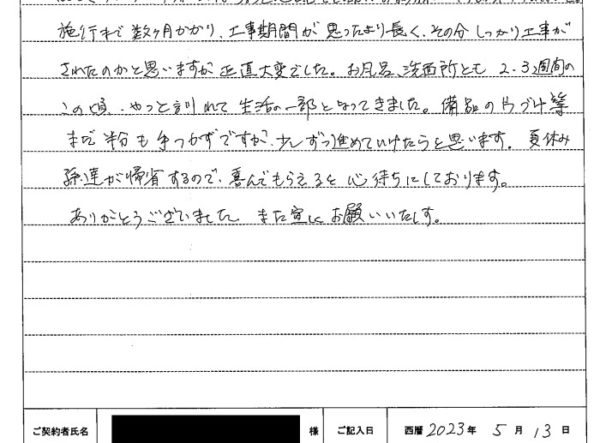 施行まで数ヶ月かかり、工事期間が思ったより長く、その分しっかり工事が
されたのかと思いますが正直大変でした。お風呂、洗面所とも2.3週間の
この頃、やっと慣れて生活の一部となってきました。備品の片づけ等
まだ半分も手つかずですが、少しずつ進めていけたらと思います。夏休み
孫達が帰省するので、喜んでもらえると心待ちにしております。
ありがとうございました。また宜しくお願いいたします。
ご契約者氏名 様 ご記入日 西暦 2023年 5月 13日